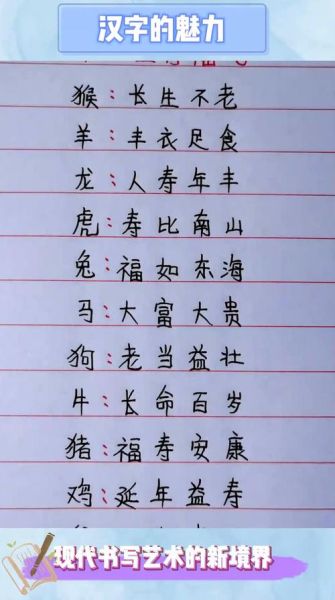 汉字的魅力
猴:长生不老
羊:丰衣足食
龙:人寿年丰
虎:寿比南山
兔:福如东海
马:大富大贵
狗:老当益壮
牛:长命百岁
猪:福寿安康
鸡:延年益寿
现代书写艺术的新境界